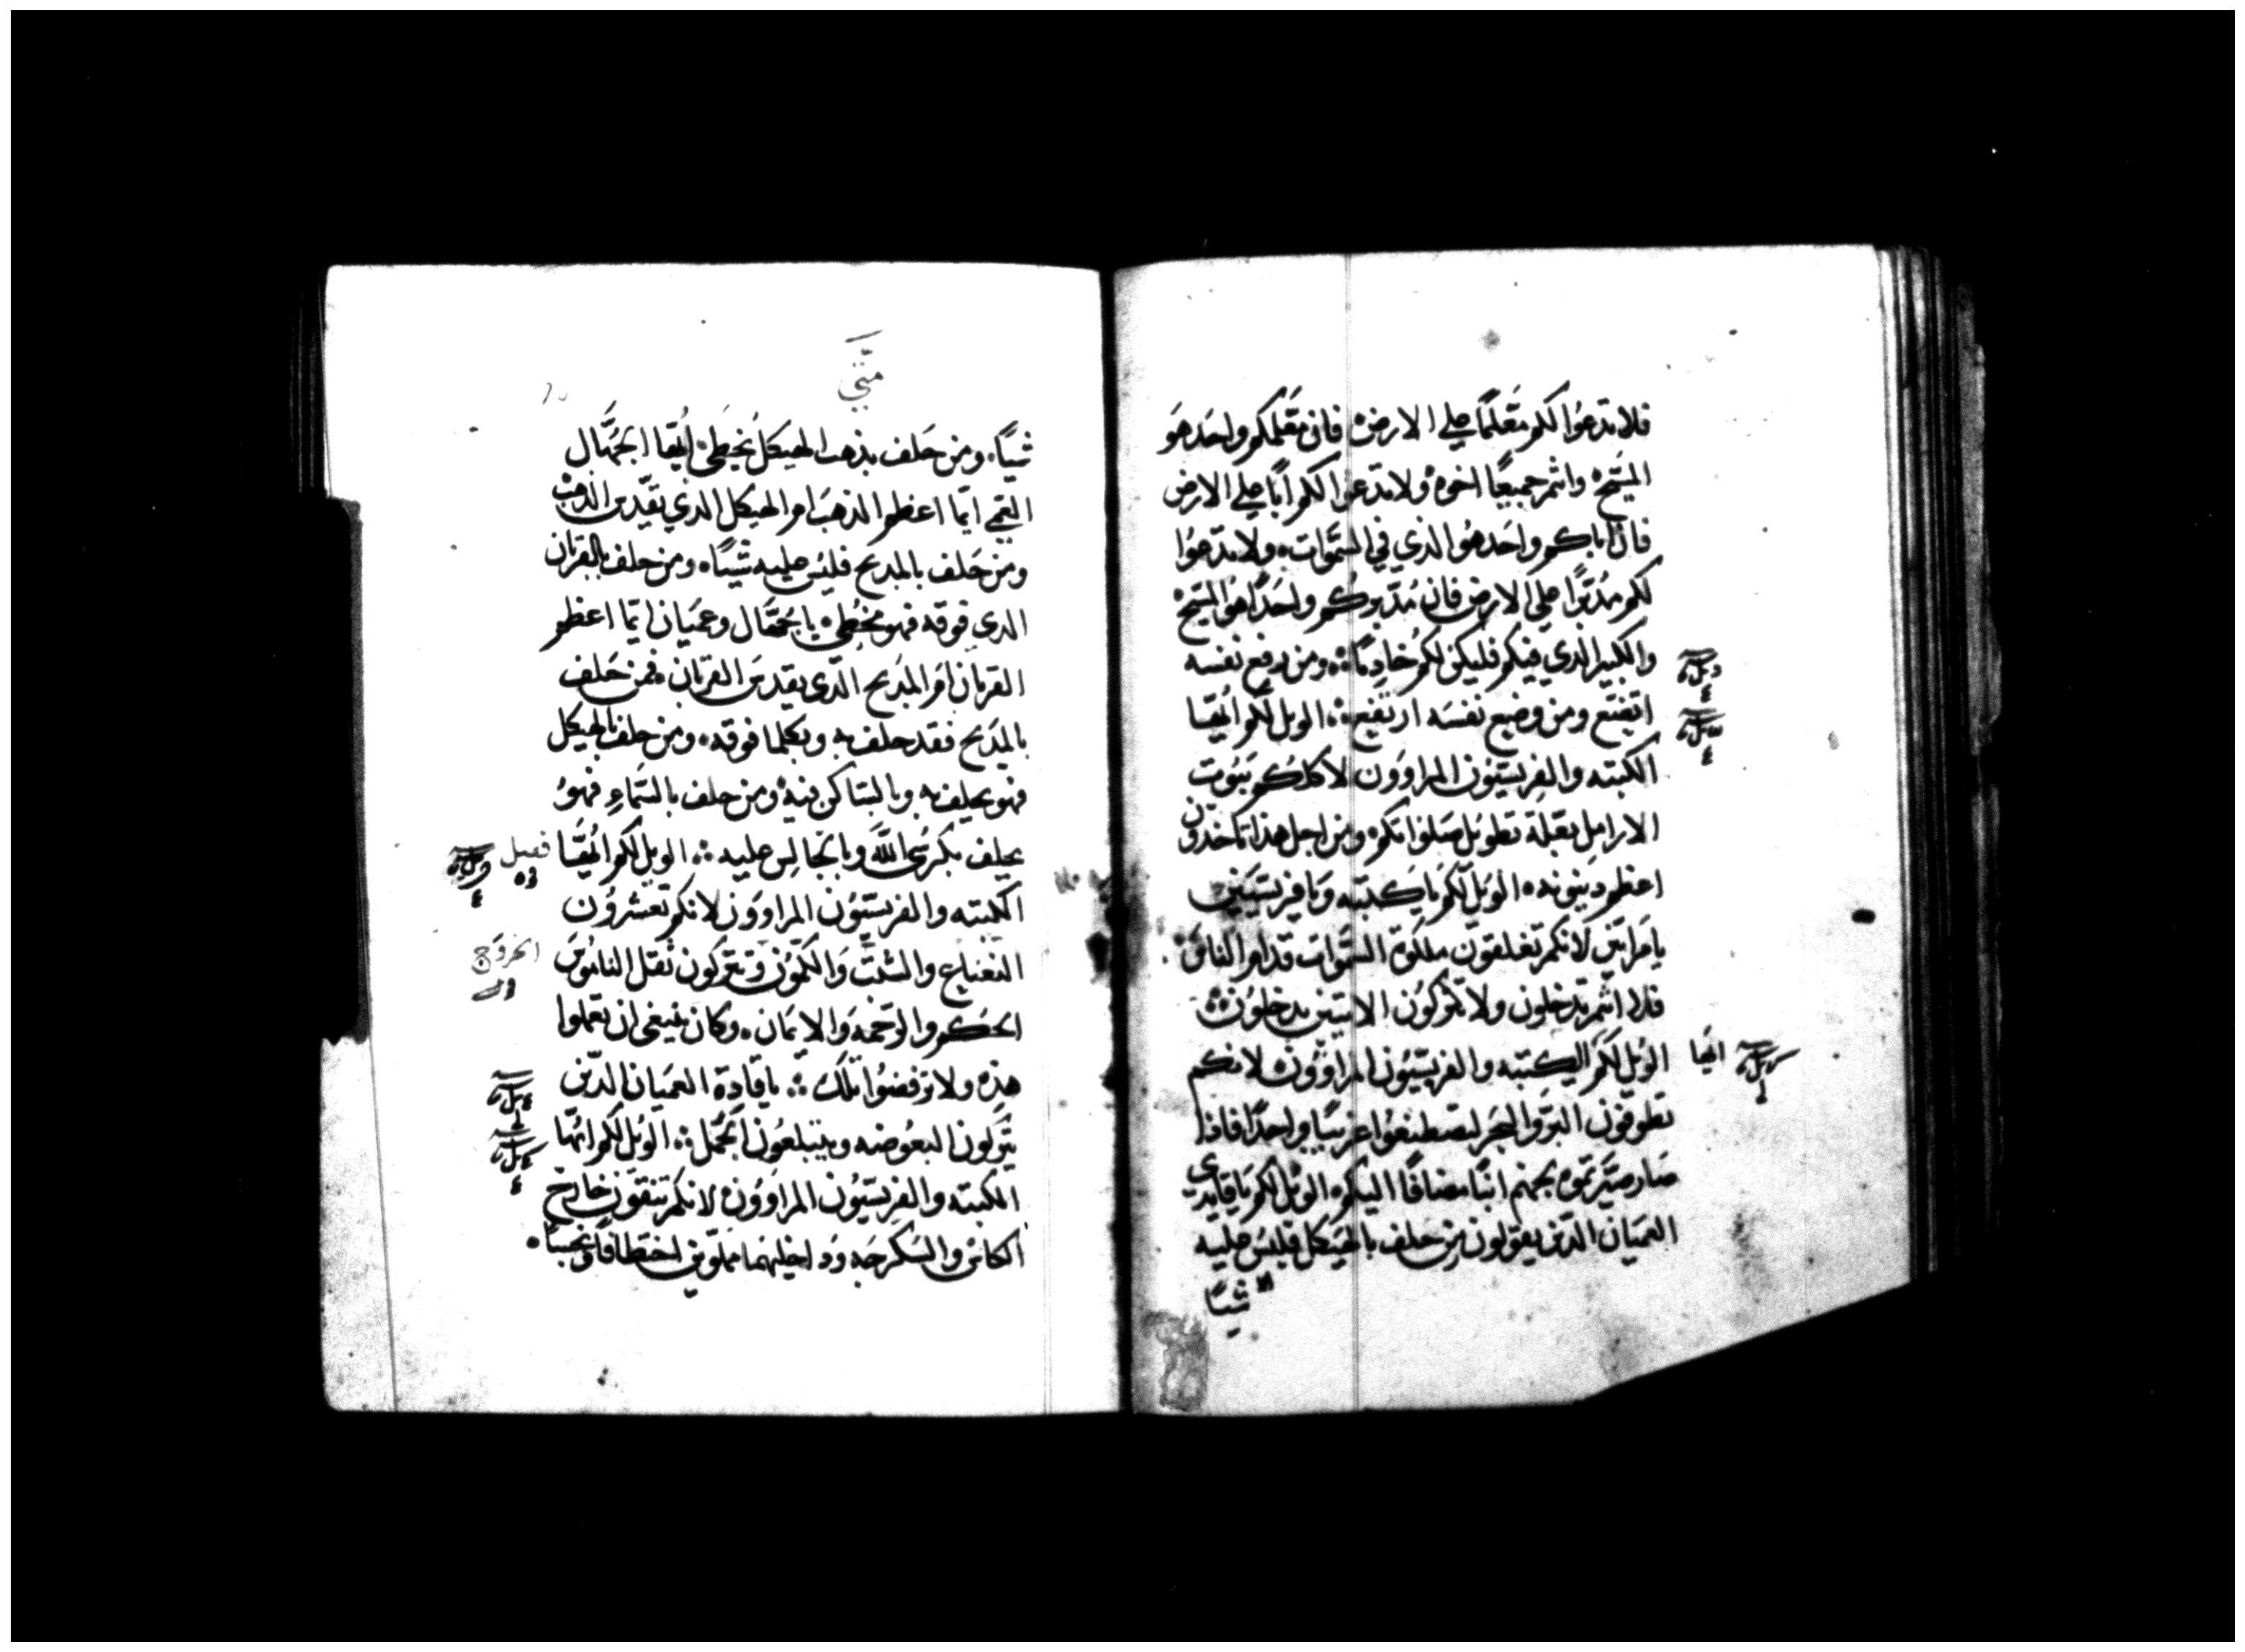 فلا تدعوا لكم معلمًا علي الارض فان معلمكم واحد هو
المسيح وانتم جميعًا اخوه ولا تدعوا لكم ابًا علي الارض
فان اباكم واحد هو الذي في السموات ولا تدعوا
لكم مدبرًا علي الارض فان مدبركم واحدًا هو المسيح
والكبير الذي فيكم فليكن لكم خادمًا ومن رفع نفسه
اتضع ومن وضع نفسه ارتفع الويل لكم ايها
الكتبه والفريسيون المراوون لاكلكم بيوت
الارامل بعلة تطويل صلواتكم ومن اجل هذا تاخذون
اعظم دينونه الويل لكم يا كتبه ويا فريسيين
يا مرايين لانكم تغلقون ملكوة السموات قدام الناس
فلا انتم تدخلون ولا تتركون الاتيين يدخلون
الويل لكم ايها الكتبه والفريسيون المراوون لانكم
تطوفون البر والبحر لتصطنعوا غريبًا واحدًا فاذا
صار صيرتموه لجهنم ابنًا مضافًا اليكم الويل لكم يا قايدي
العميان الذين يقولون من حلف بالهيكل فليس عليه
شيًا
متي
شيًا ومن حلف بذهب الهيكل يخطي ايها الجهال
العمي ايما اعظم الذهب ام الهيكل الذي يقدس الذهب
ومن حلف بالمدبح فليس عليه شيًا ومن حلف بالقربان
الدي فوقه فهو مخطي يا جهال وعميان ايما اعظم
القربان ام المدبح الذي يقدس القربان فمن حلف
بالمدبح فقد حلف به وبكلما فوقه ومن حلف بالهيكل
فهو يحلف به وبالساكن فيه ومن حلف بالسماء فهو
يحلف بكرسي الله وبالجالس عليه الويل لكم ايها
فصل
الكتبه والفريسيون المراوون لانكم تعشرون
النعناع والشبت والكمون وتتركون ثقل الناموس
الخروج
الحكم والرحمه والايمان وكان ينبغي ان تعملوا
هذه ولا ترفضوا تلك يا قادة العميان الذين
يتركون البعوضه ويبتلعون الجمل الويل لكم ايها
الكتبه والفريسيون المراوون لانكم تنقون خارج
الكاس والسكرجه وداخلهما مملوين اختطافًا ونجسًا